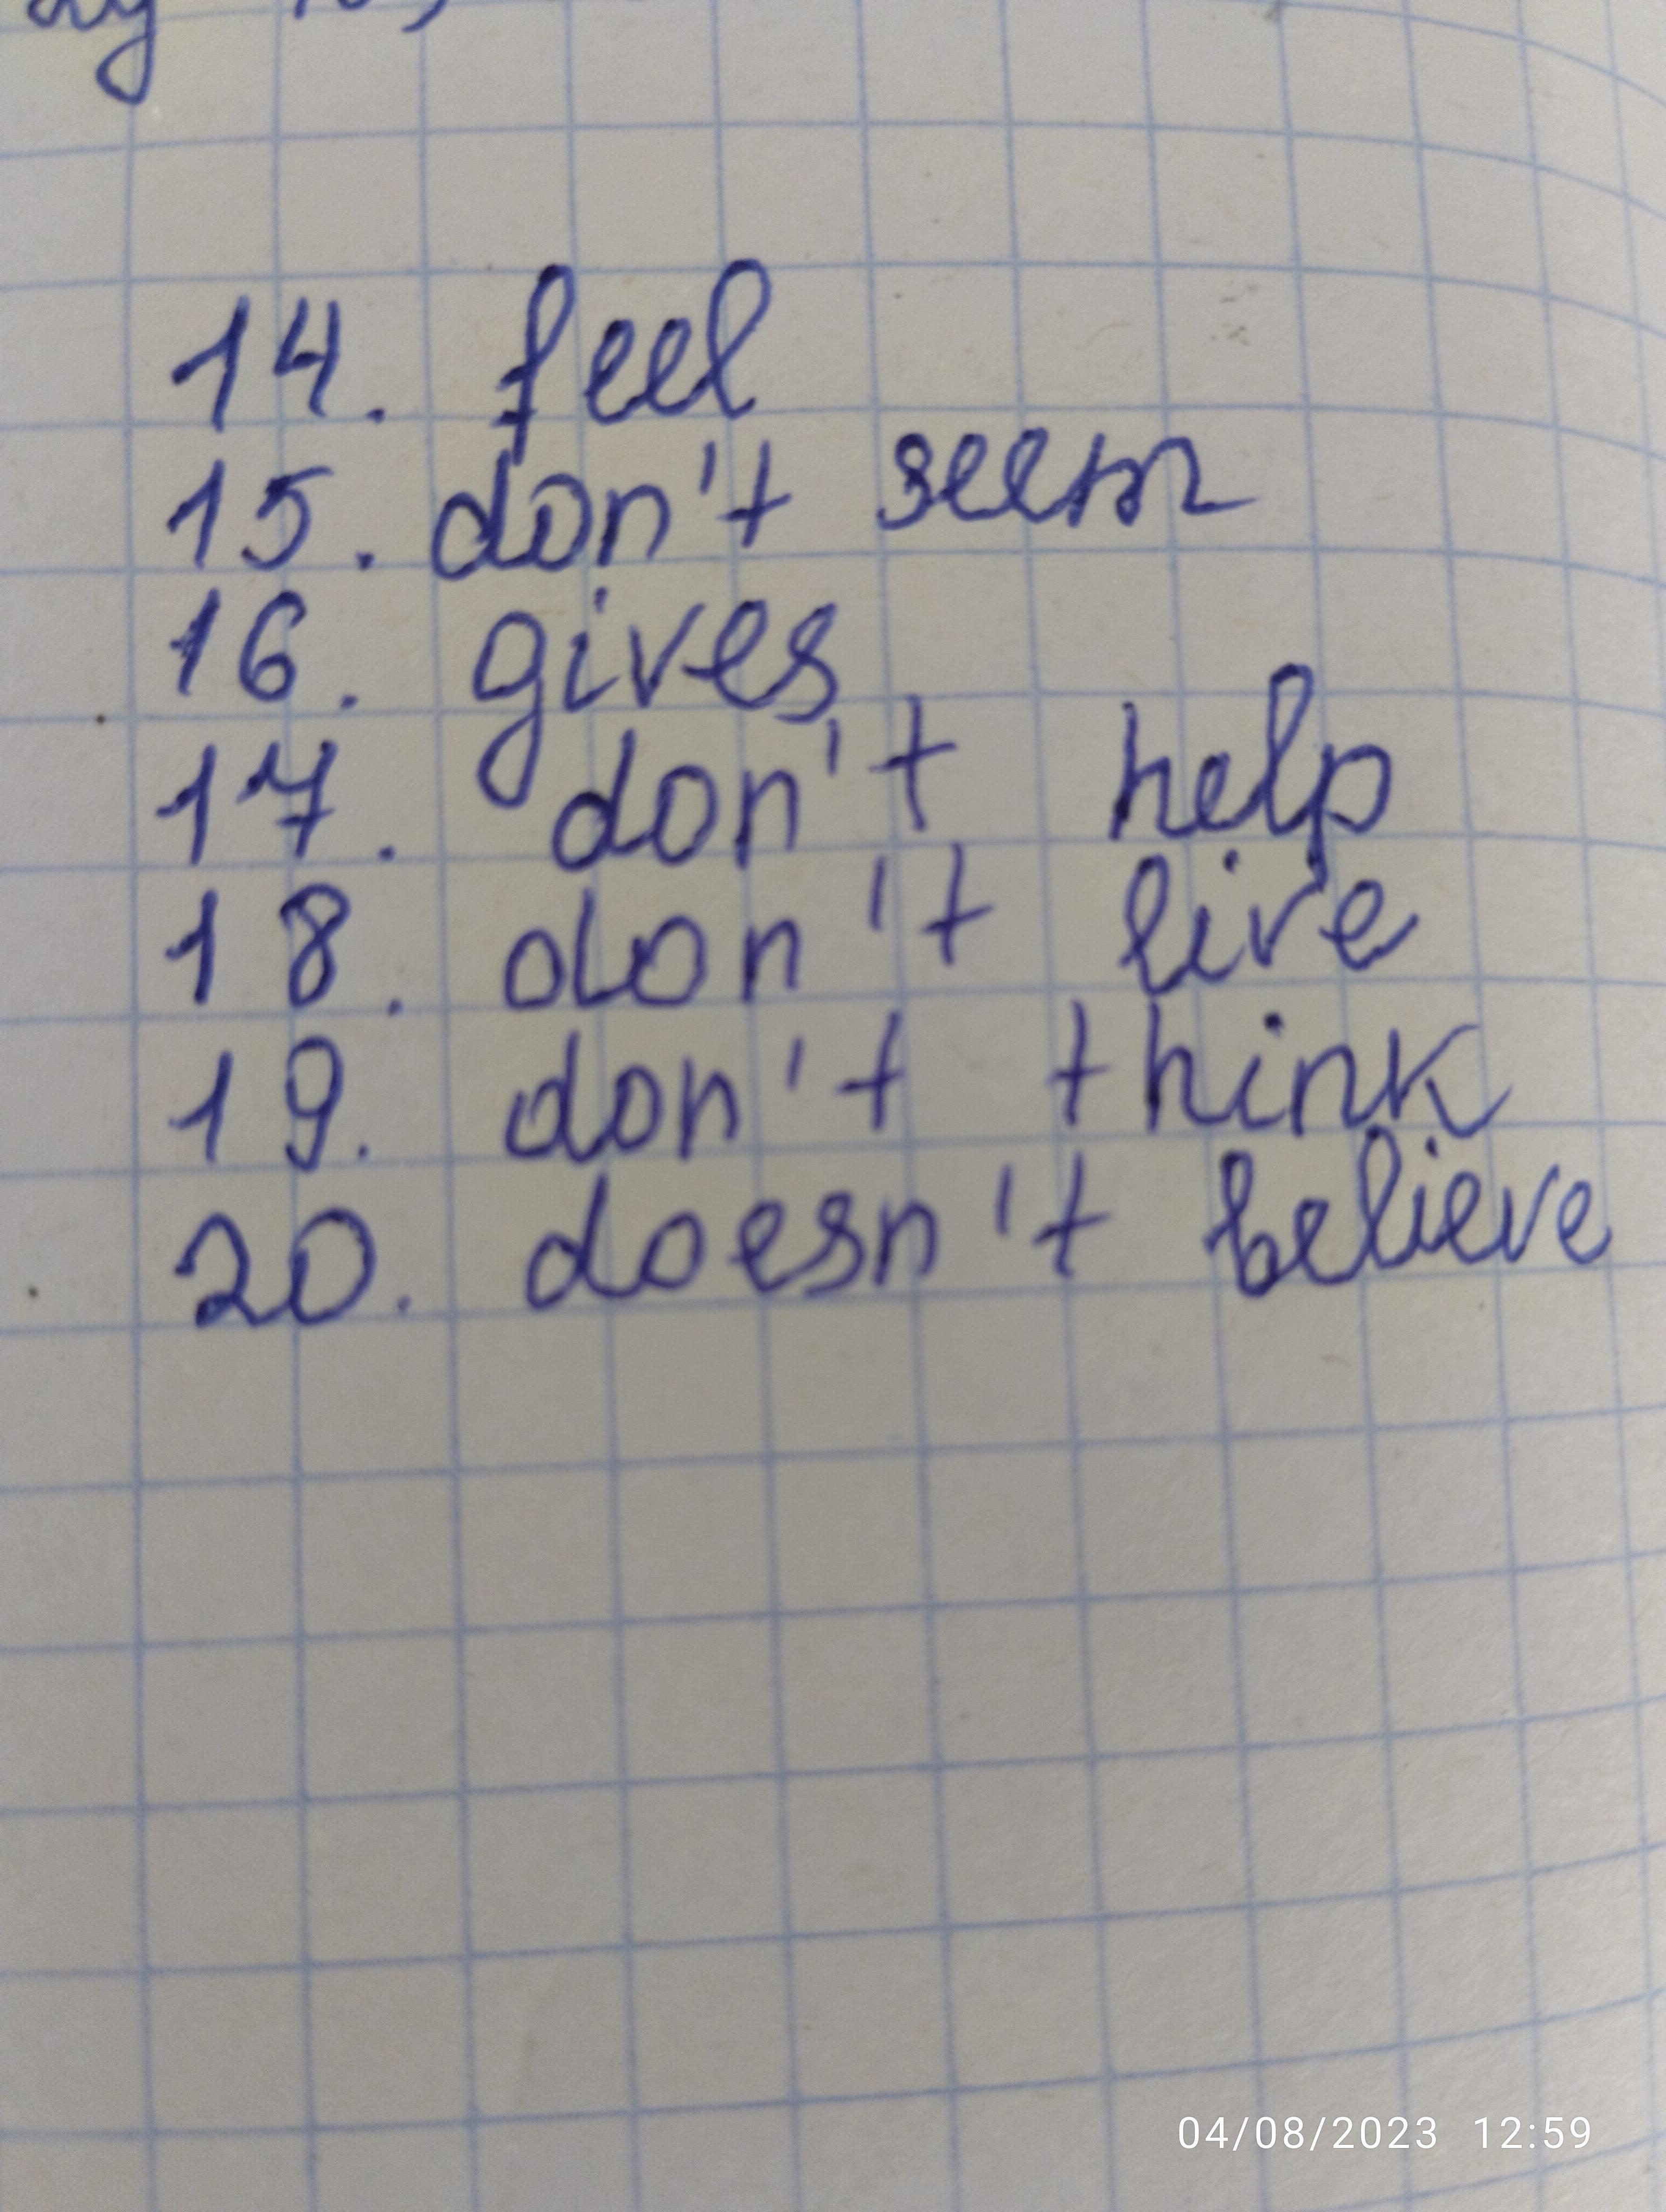 14. feel
15. don't seem
16. gives
17. don't help
18. don't live
19. don't think
20. doesn't believe
04/08/2023 12:59